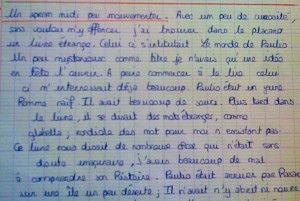 Un après midi peu mouvementer. Avec un peu de curiosité
sans vouloir m'y efforcer j'ai trouver dans le placard
un livre étrange. Celui ci s'intitulait Le monde de Paulio
Un peu mystérieux comme titre je n'avais qu'une idée
en tête l'ouvrir. A peine commencer à le lire celui
ci m'interressait déjà beaucoup. Paulio était un jeune
homme naïf. Il avait beaucoup de
le livre, il se disait des mots étranges, comme
des mot pour moi n'existant pas
Ce livre nous disait de nombreuse chose qui n'était sans
doute imaginaire, j'avais beaucoup de mal
à comprendre son histoire. Paulio était
sur une île un peu déserte; Il n'avait n'y